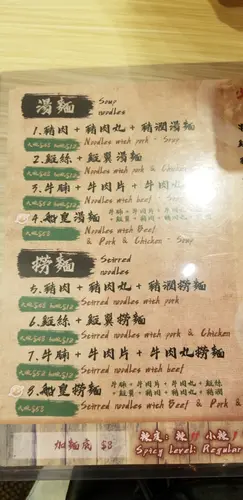 湯麵 Soup noodles
1.豬肉 + 豬肉丸 + 豬潤湯麵
Noodles with pork - Soup
2.雞絲 + 雞翼湯麵
Noodles with pork & Chicken - Soup
3.牛腩 + 牛肉片 + 牛肉丸
Noodles with beef - Soup
4.船皇湯麵
Noodles with Beef
& Pork & Chicken - Soup
撈麵 Stirred noodles
5.豬肉 + 豬肉丸 + 豬潤撈麵
Stirred noodles with pork
6.雞絲 + 雞翼撈麵
Stirred noodles with pork & Chicken
7.牛腩 + 牛肉片 + 牛肉丸撈麵
Stirred noodles with beef
8.船皇撈麵 牛腩 + 牛肉片 + 牛肉丸 + 雞絲
Stirred noodles with Beef & Pork &
加麵底 $8
辣度: 辣 小辣
Spicy Level: Regular